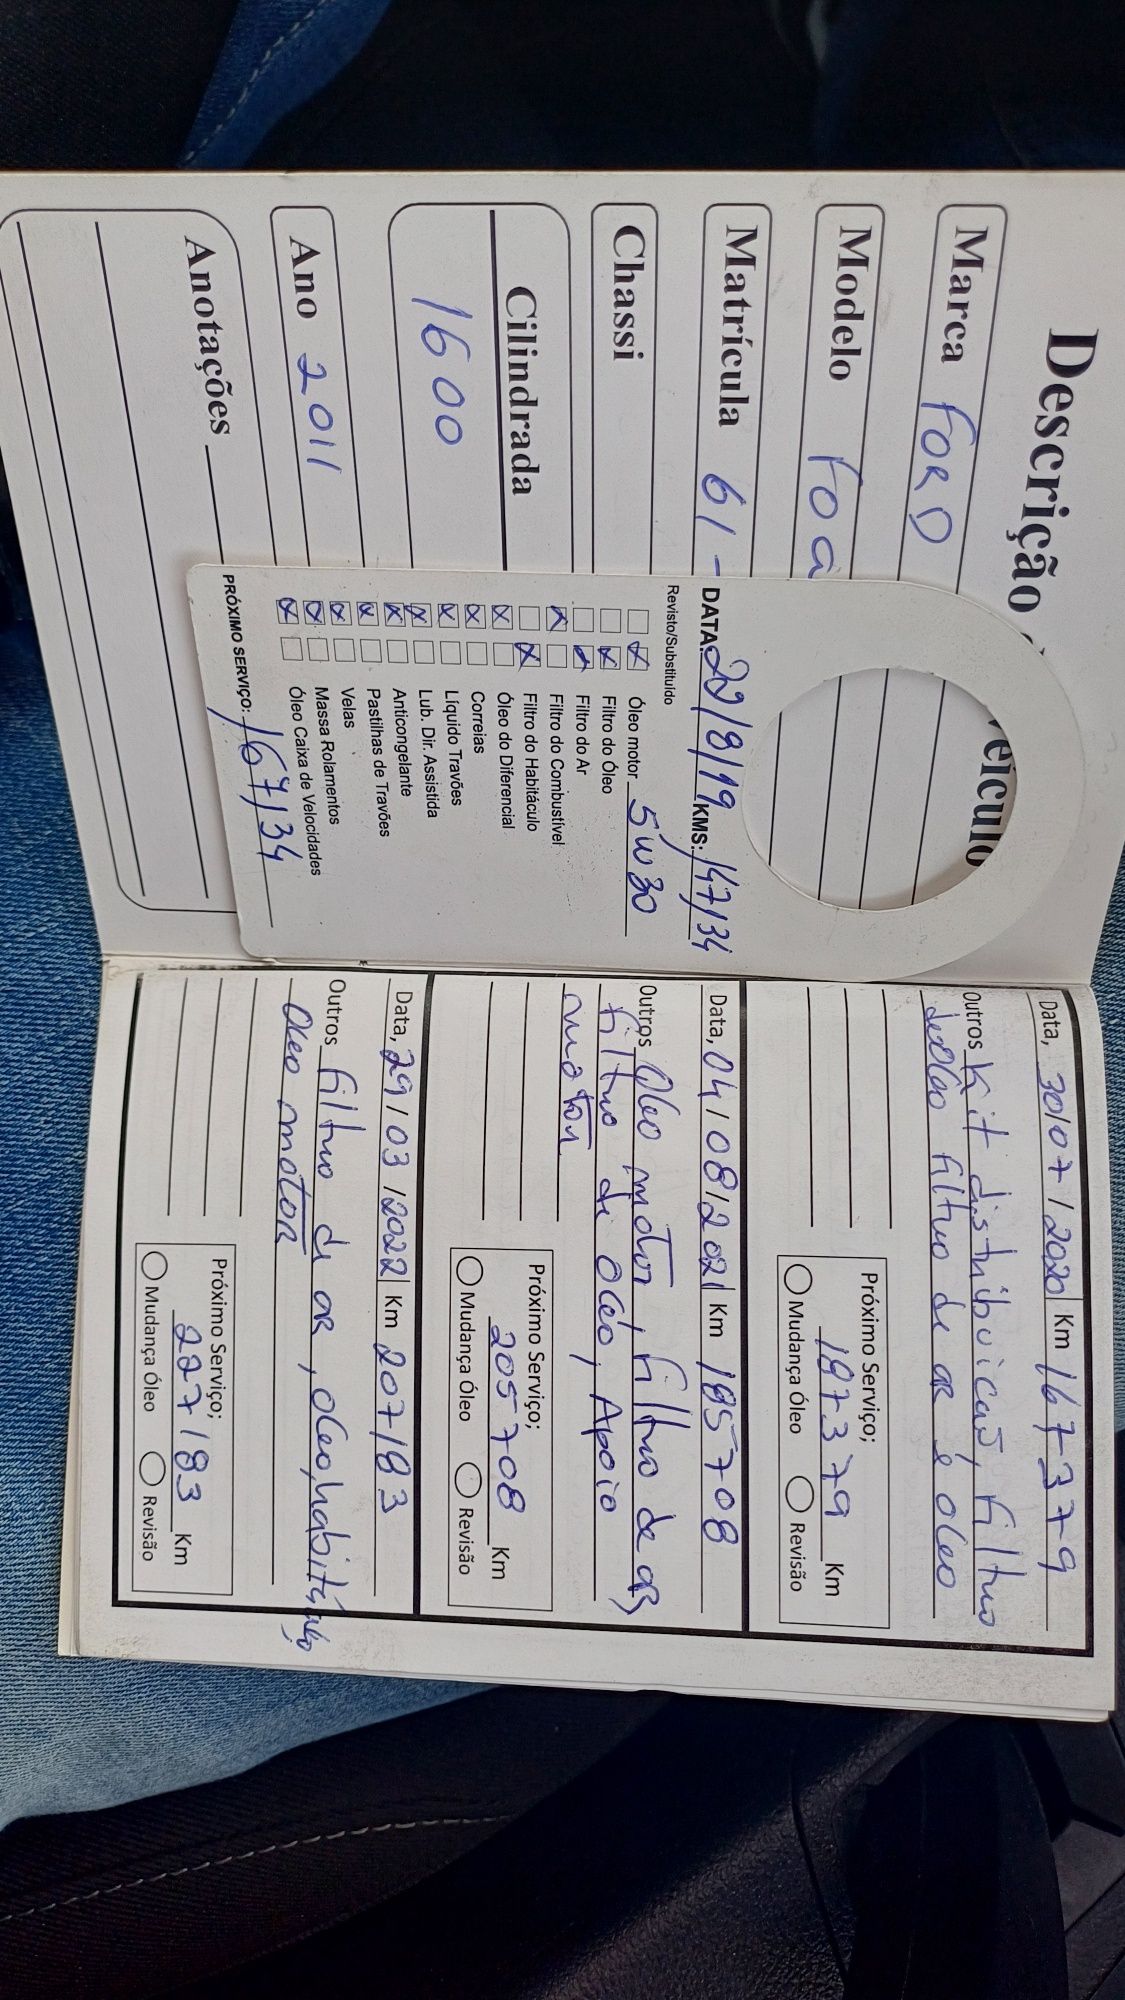 Descrição
veículo
Marca FORD
Modelo Foc
Matrícula 61-
Chassi
Cilindrada
1600
Ano 2011
Anotações
DATA: 22/8/19 KMS: 147134
Revisto/Substituído
Óleo motor 5W30
Filtro do Óleo
Filtro do Ar
Filtro do Combustível
Filtro do Habitáculo
Óleo do Diferencial
Correias
Líquido Travões
Lub. Dir. Assistida
Anticongelante
Pastilhas de Travões
Velas
Massa Rolamentos
Óleo Caixa de Velocidades
PRÓXIMO SERVIÇO: 167134
Data, 30/07/2020 Km 167379
Outros Kit distribuicaõ, filtro
filtro de ar e oleo
Próximo Serviço;
187379 Km
Mudança Óleo Revisão
Data, 04/08/2021 Km 185708
Outros Oleo motor, filtro de ar,
filtro de oleo, Apoio
motor
Próximo Serviço;
205708 Km
Mudança Óleo Revisão
Data, 29/03/2022 Km 207183
Outros filtro de ar, oleo, habitáculo,
oleo motor
Próximo Serviço;
227183 Km
Mudança Óleo Revisão